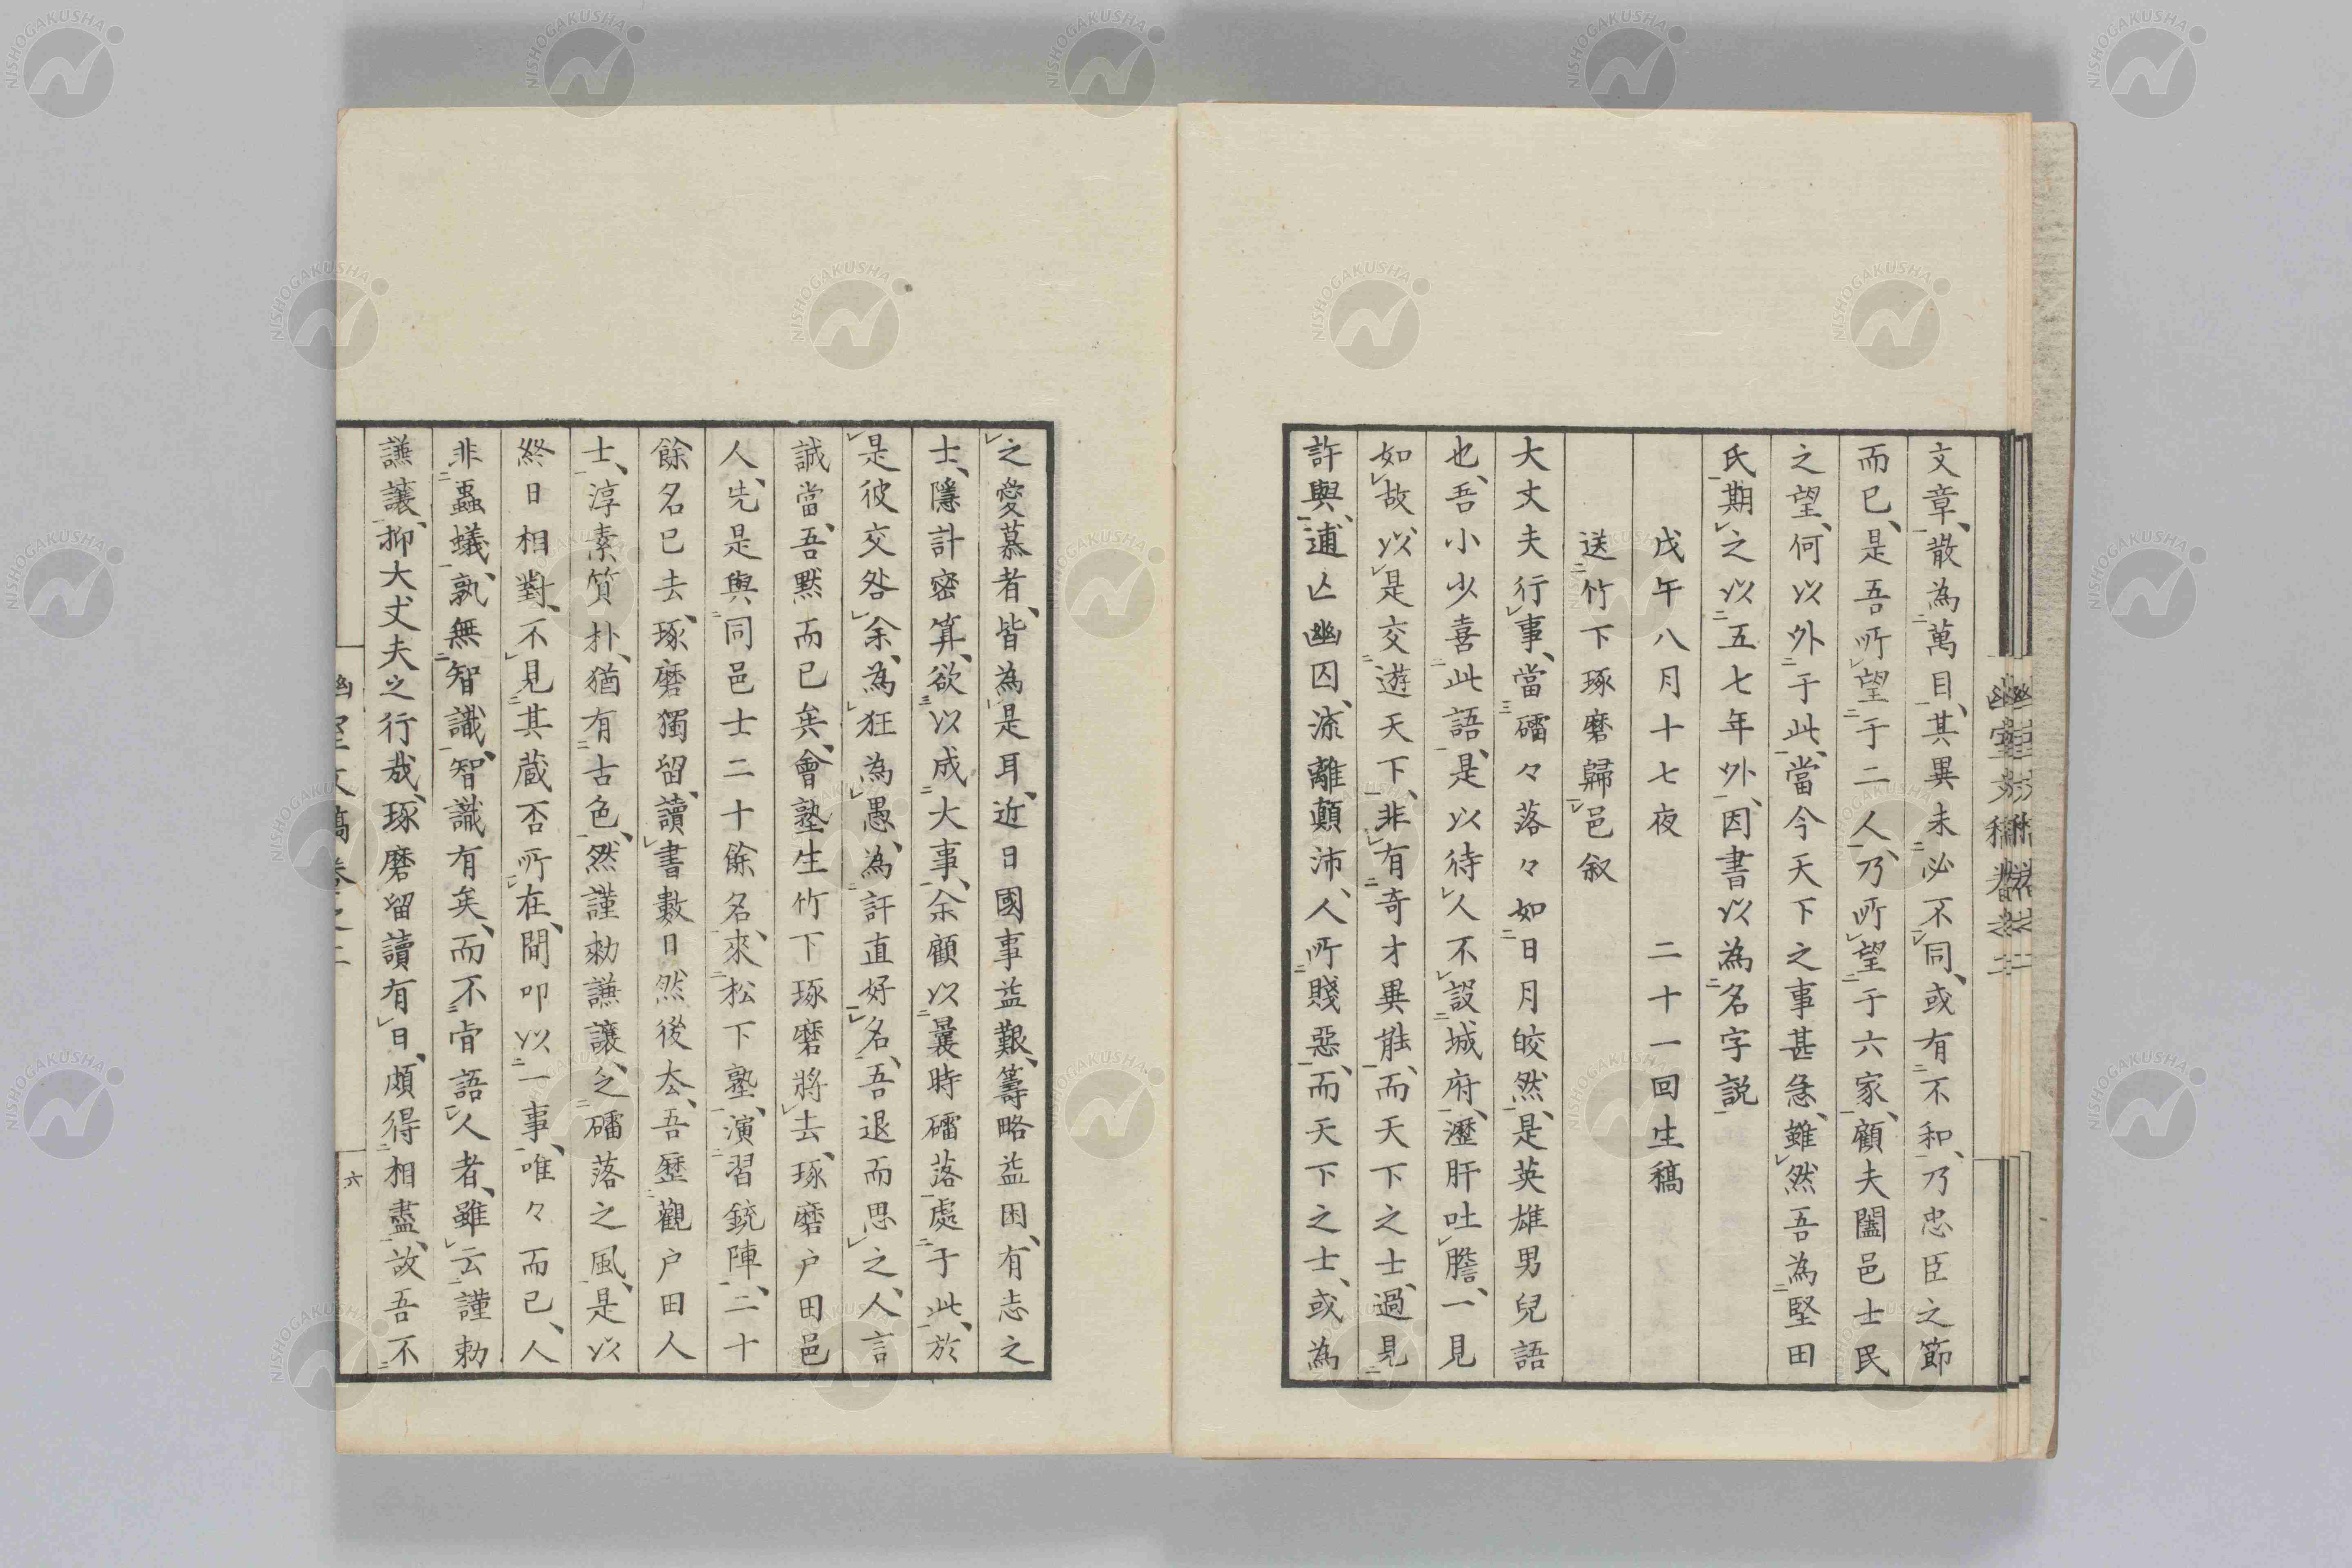 文章、散為萬目、其異未必不同、或有不和、乃忠臣之節
而已、是吾所望于二人、乃所望于六家、顧夫闔邑士民
之望、何以外于此、當今天下之事甚急、雖然吾為堅田
氏期之以五七年外、因書以為名字説
戊午八月十七夜　二十一回生稿
送竹下琢磨歸邑叙
大丈夫行事、當礌々落々如日月皎然、是英雄男兒語
也、吾小少喜此語、是以待人不設城府、瀝肝吐膽、一見
如故、以是交遊天下、非有奇才異能、而天下之士、過見
許與、逋亡幽囚、流離顛沛、人所賤惡、而天下之士、或為
之愛慕者、皆為是耳、近日國事益艱、籌略益困、有志之
士、隱計密算、欲以成大事、余顧以曩時礌落處于此、於
是彼交咎余、為狂為愚、為訐直好名、吾退而思之、人言
誠當、吾默而已矣、會塾生竹下琢磨將去、琢磨戸田邑
人、先是與同邑士二十餘名、來松下塾、演習銃陣、二十
餘名已去、琢磨獨留、讀書數日然後去、吾歷觀戸田人
士、淳素質朴、猶有古色、然謹勅謙讓、乏礌落之風、是以
終日相對、不見其藏否所在、間叩以一事、唯々而已、人
非蟲蟻、孰無智識、智識有矣、而不肯語人者、雖云謹勅
謙讓、抑大丈夫之行哉、琢磨留讀有日、頗得相盡、故吾不
幽室文稿卷之二
六